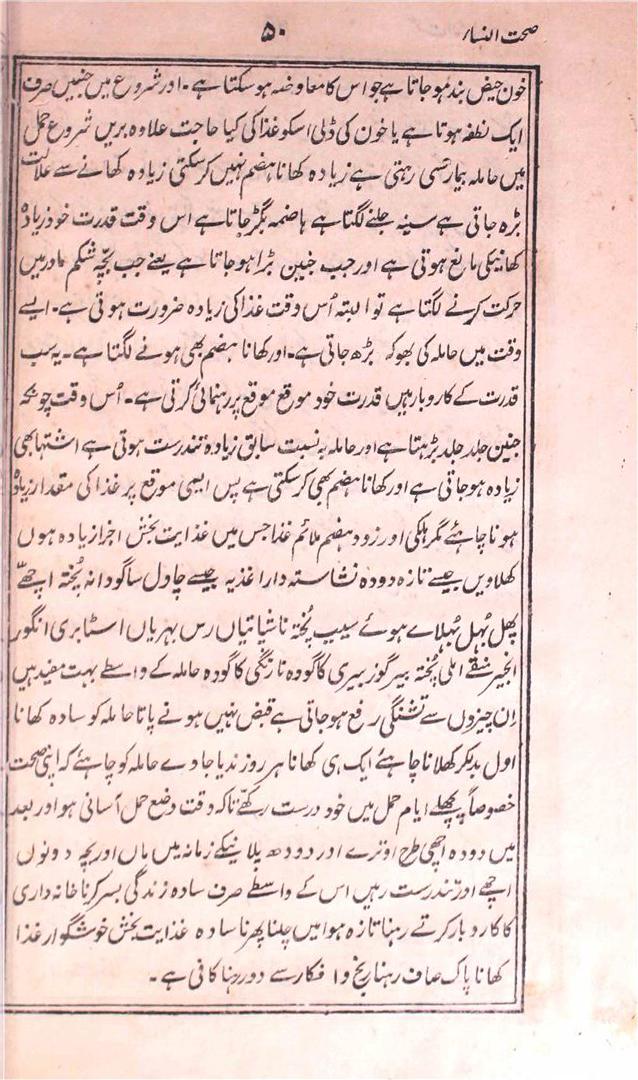 صحت النساء
۵۰
خون حیض بند ہو جاتا ہے جو اس کا معاوضہ ہو سکتا ہے۔ اور شروع میں جنہیں صرف
ایک نطفہ ہوتا ہے یا خون کی ڈلی اسکو غذا کی کیا حاجت علاوہ بریں شروع حمل
میں حاملہ بیمار سی رہتی ہے زیادہ کھانا ہضم نہیں کر سکتی زیادہ کھانے سے علالت
بڑہ جاتی ہے سینہ جلنے لگتا ہے ہاضمہ بگڑ جاتا ہے اس وقت قدرت خود زیادہ
کھانیکی مانع ہوتی ہے اور جب جنین بڑا ہو جاتا ہے یعنے جب بچّہ شکم مادر میں
حرکت کرنے لگتا ہے تو البتہ اُس وقت غذا کی زیادہ ضرورت ہوتی ہے۔ ایسے
وقت میں حاملہ کی بھوک بڑھ جاتی ہے۔ اور کھانا ہضم بھی ہونے لگتا ہے۔ یہ سب
قدرت کے کاروبار ہیں قدرت خود موقع موقع پر رہنمائی کرتی ہے۔ اُس وقت چونکہ
جنین جلد جلد بڑہتا ہے اور حاملہ بہ نسبت سابق زیادہ تندرست ہوتی ہے اشتہا بھی
زیادہ ہو جاتی ہے اور کھانا ہضم بھی کر سکتی ہے پس ایسی موقع پر غذا کی مقدار زیادہ
ہونا چاہئے مگر ہلکی اور زود ہضم ملائم غذا جس میں غذایت بخش اجزا زیادہ ہوں
کھلاویں جیسے تازہ دودہ نشاستہ دار اغذیہ جیسے چاول ساگودانہ پُختہ اچھّے
پھل پُہل پُہلاے ہوئے سیب پُختہ ناشپاتیاں رس بہریاں اسٹابری انگور
انجیر منقے املی پُختہ بیر گوزبیری کا گودہ نارنگی کا گودہ حاملہ کے واسطے بہت مفید ہیں
اِن چیزوں سے تشنگی رفع ہو جاتی ہے قبض نہیں ہونے پاتا حاملہ کو سادہ کھانا
اول بدلکر کھلانا چاہئے ایک ہی کھانا ہر روز ندیا جاوے حاملہ کو چاہئے کہ اپنی صحت
خصوصاً پچھلے ایام حمل میں خود درست رکھّے تاکہ وقت وضع حمل آسانی ہو اور بعد
میں دودہ اچھی طرح اوترے اور دودھ پلانیکے زمانہ میں ماں اور بچہ دونوں
اچھے اور تندرست رہیں اس کے واسطے صرف سادہ زندگی بسر کرنا خانہ داری
کا کاروبار کرتے رہنا تازہ ہوا میں چلنا پھرنا سادہ غذایت بخش خوشگوار غذا
کھانا پاک صاف رہنا رنج و افکار سے دور رہنا کافی ہے۔